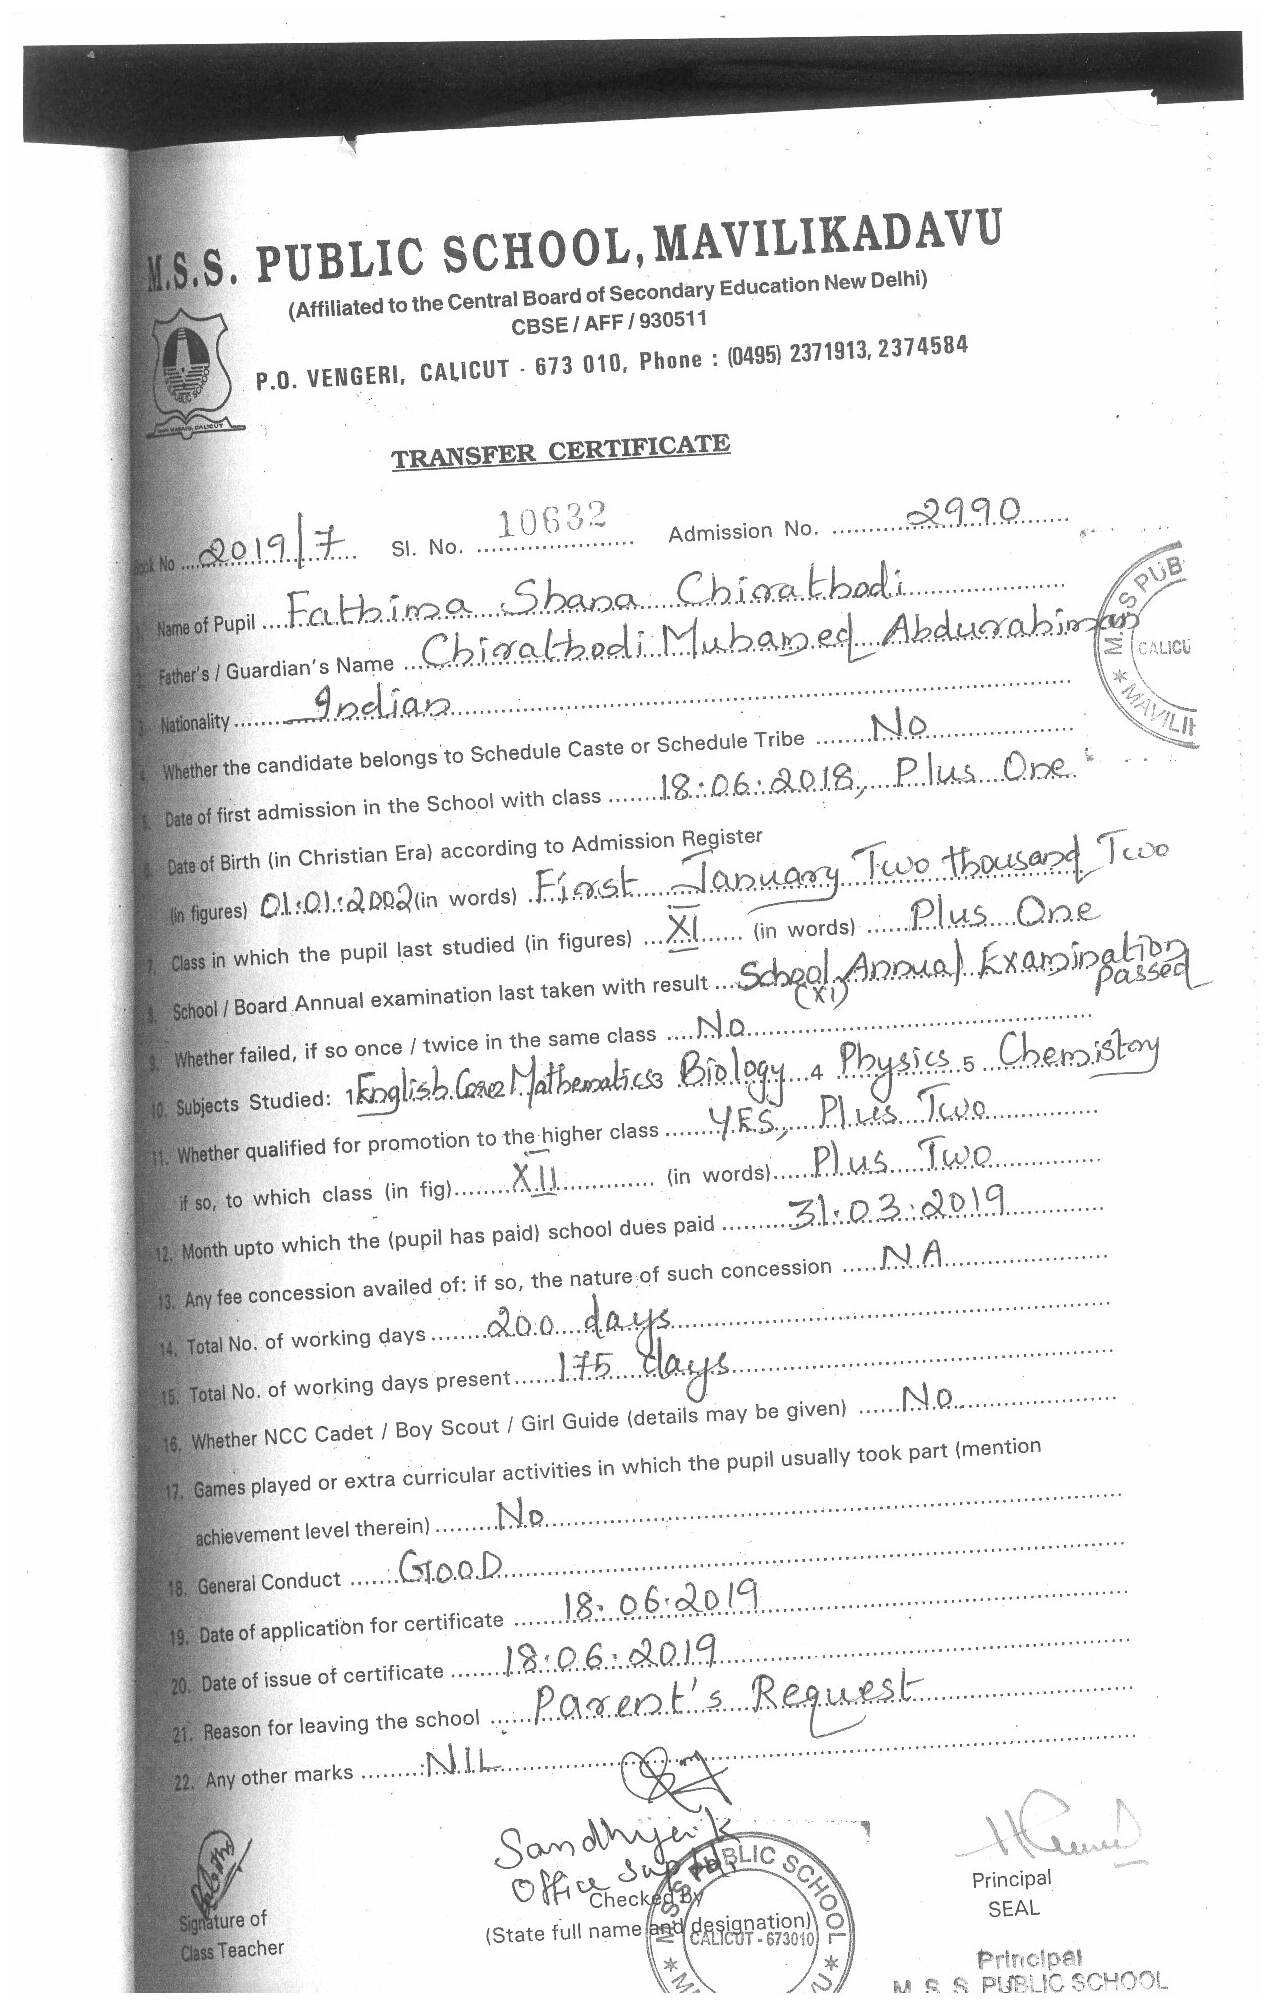 M.S.S. PUBLIC SCHOOL, MAVILIKADAVU
(Affiliated to the Central Board of Secondary Education New Delhi)
CBSE / AFF / 930511
P.O. VENGERI, CALICUT - 673 010, Phone : (0495) 2371913, 2374584
TRANSFER CERTIFICATE
Book No 2019/7 Sl. No. 10632 Admission No. 2990
1. Name of Pupil Fathima Shana Chirathodi
2. Father's / Guardian's Name Chirathodi Muhamed Abdurahiman
3. Nationality Indian
4. Whether the candidate belongs to Schedule Caste or Schedule Tribe No
5. Date of first admission in the School with class 18.06.2018, Plus One
6. Date of Birth (in Christian Era) according to Admission Register
(in figures) 01.01.2002 (in words) First January Two thousand Two
7. Class in which the pupil last studied (in figures) XI (in words) Plus One
8. School / Board Annual examination last taken with result School Annual Examination (XI) Passed
9. Whether failed, if so once / twice in the same class No
10. Subjects Studied: 1 English Core 2 Mathematics 3 Biology 4 Physics 5 Chemistry
11. Whether qualified for promotion to the higher class YES, Plus Two
if so, to which class (in fig) XII (in words) Plus Two
12. Month upto which the (pupil has paid) school dues paid 31.03.2019
13. Any fee concession availed of: if so, the nature of such concession NA
14. Total No. of working days 200 days
15. Total No. of working days present 175 days
16. Whether NCC Cadet / Boy Scout / Girl Guide (details may be given) No
17. Games played or extra curricular activities in which the pupil usually took part (mention
achievement level therein) No
18. General Conduct GOOD
19. Date of application for certificate 18.06.2019
20. Date of issue of certificate 18.06.2019
21. Reason for leaving the school Parent's Request
22. Any other marks NIL
Sandhya K
Office Supdt.
Signature of
Class Teacher
Checked By
(State full name and designation)
M S S PUBLIC SCHOOL
CALICUT - 673010
Principal
SEAL
Principal
M. S. S. PUBLIC SCHOOL